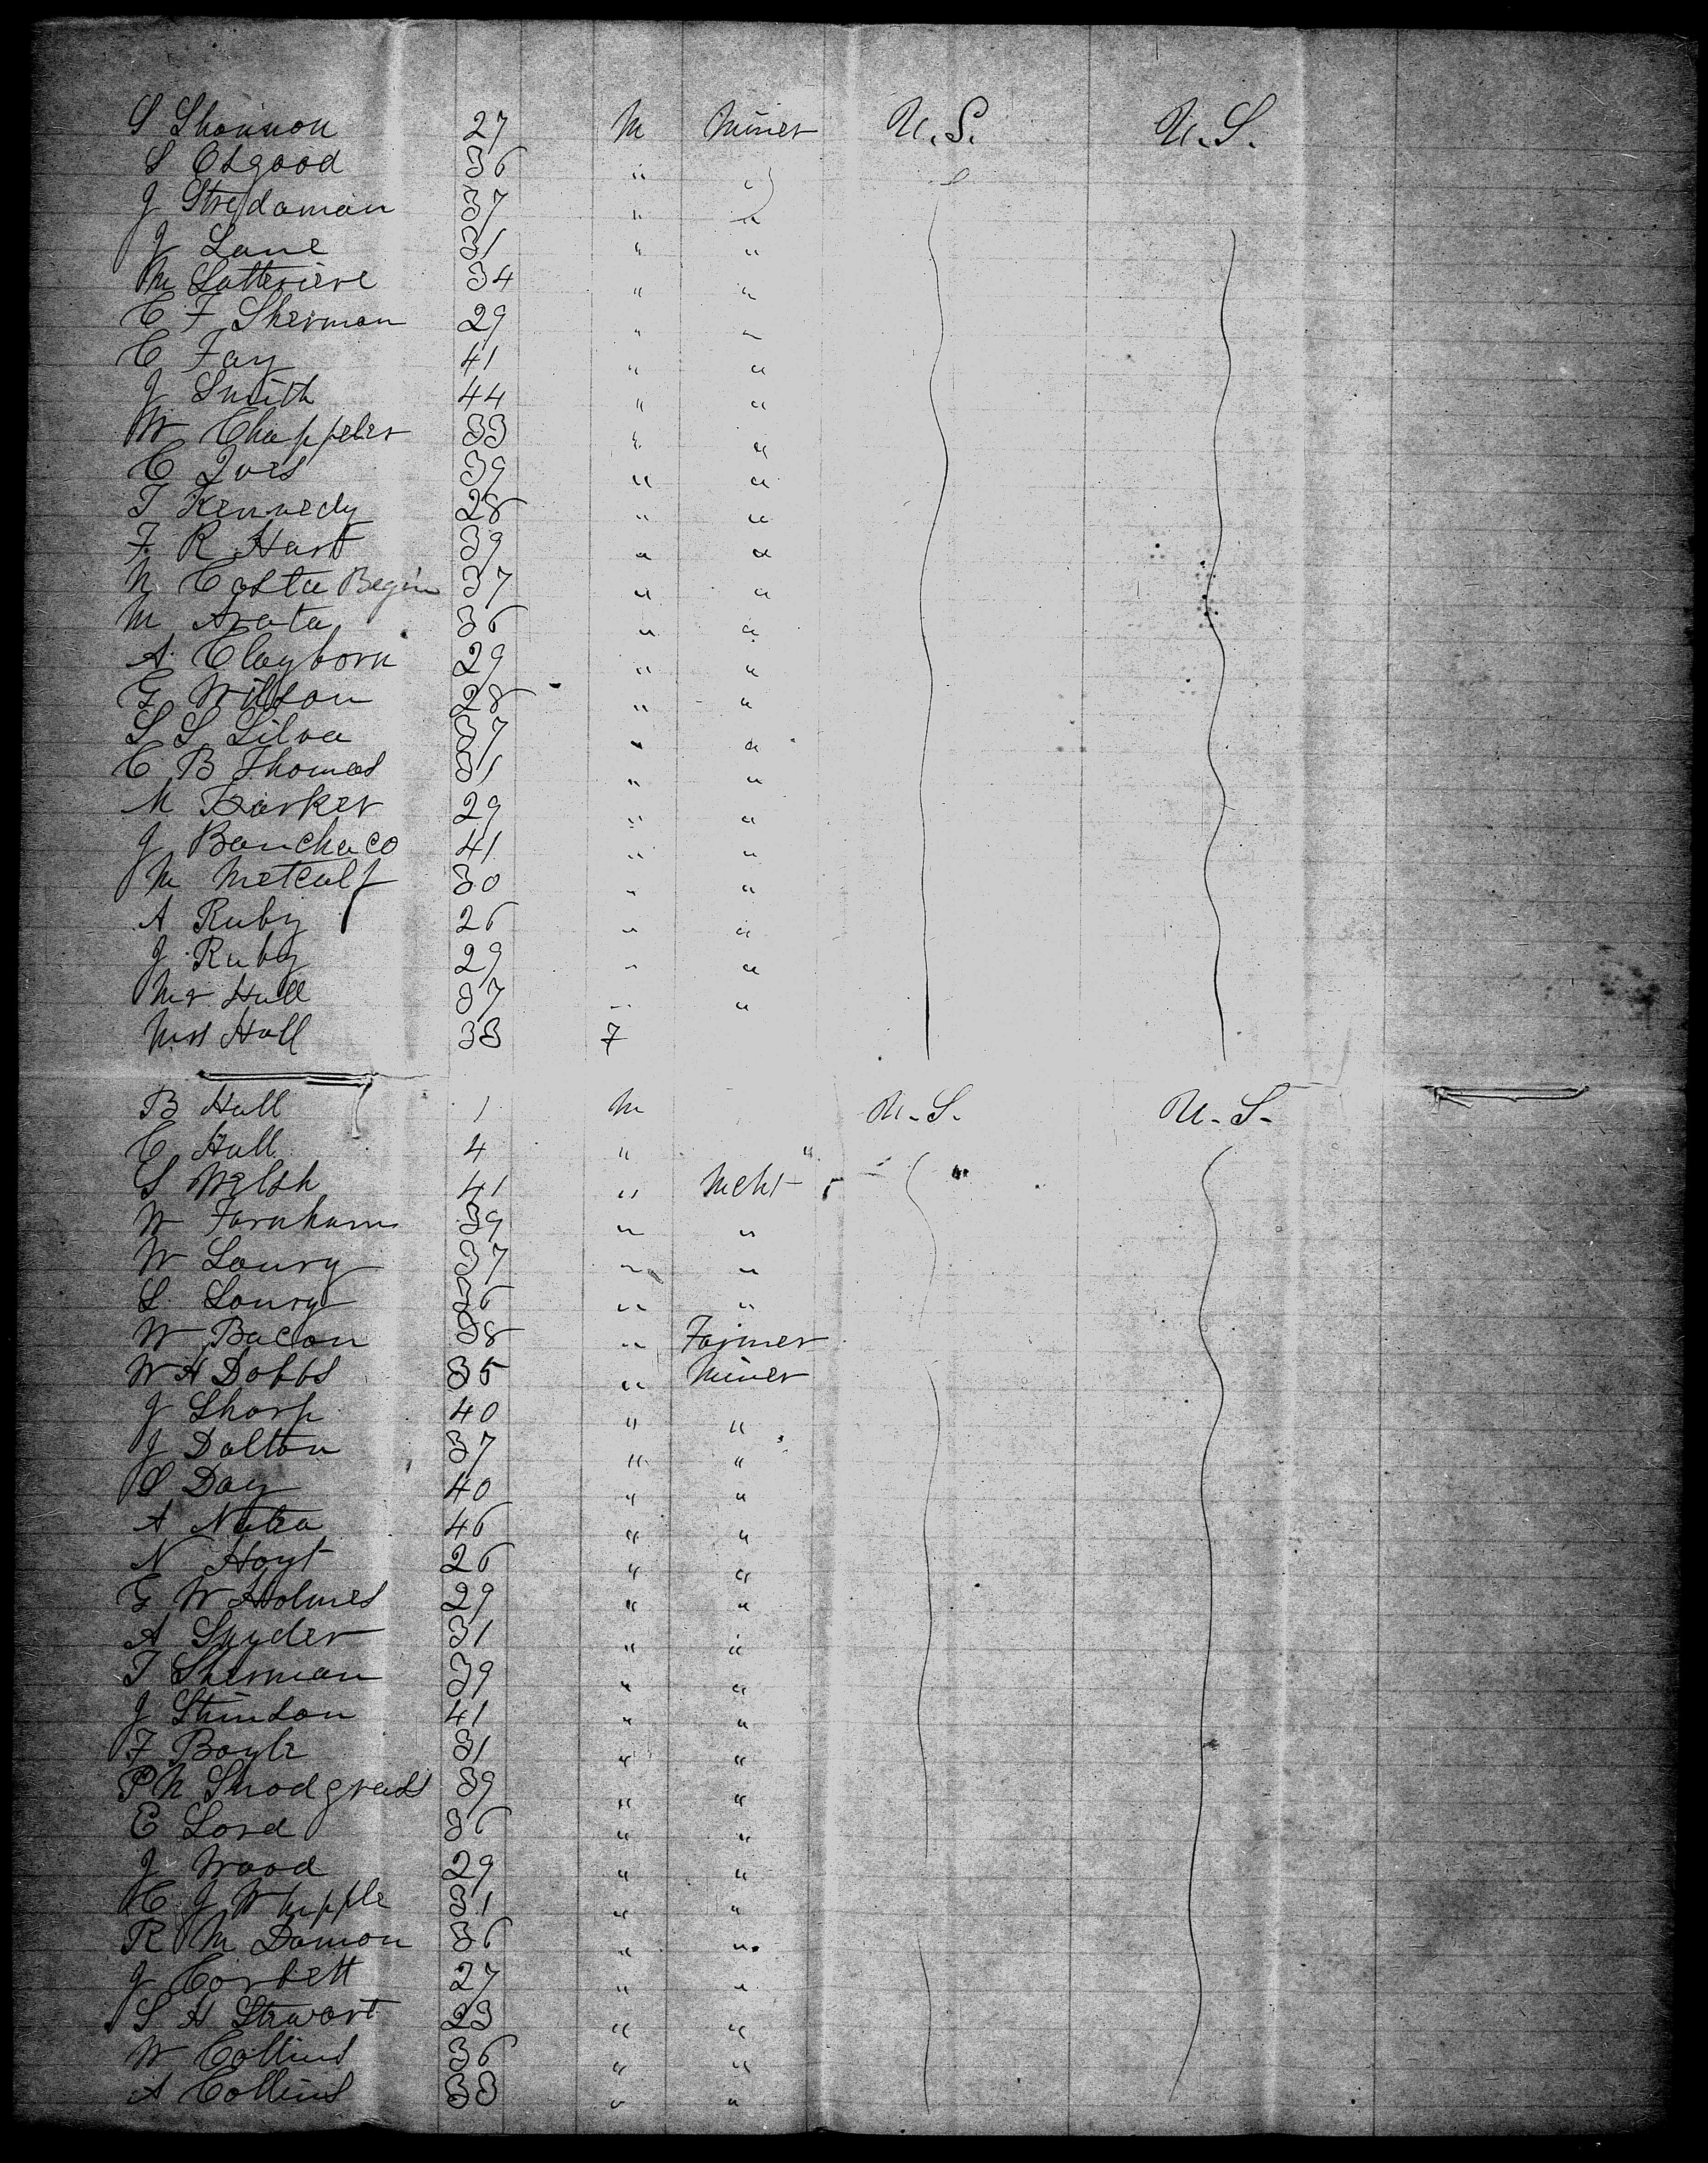 S Shannon 27 M Miner U.S. U.S.
S Osgood 36 " "
J Stredaman 37 " "
J Lane 31 " "
M Latteriere 34 " "
C F Sherman 29 " "
C Fay 41 " "
J Smith 44 " "
W Chappeler 33 " "
C Ives 39 " "
T Kennedy 28 " "
F R Hart 39 " "
N Costa Begin 37 " "
M Arata 36 " "
A Clayborn 29 " "
G Wilson 28 " "
S S Silva 37 " "
C B Thomas 31 " "
M Barker 29 " "
J Banchaco 41 " "
M Metcalf 30 " "
A Ruby 26 " "
J Ruby 29 " "
Mr Hull 37 " "
Mrs Hall 33 F
B Hull 1 M U.S. U.S.
C Hull 4 " "
S Welsh 41 " Mcht
W Farnham 39 " "
W Loury 37 " "
L Loury 36 " "
W Bacon 38 " Farmer
W H Dobbs 35 " Miner
J Sharp 40 " "
J Dalton 37 " "
S Day 40 " "
A 46 " "
N Hoyt 26 " "
G W Holmes 29 " "
A Snyder 31 " "
T Sherman 39 " "
J Stinson 41 " "
F Boyle 31 " "
P N Snodgrass 39 " "
E Lord 36 " "
J Wood 29 " "
C J Whipple 31 " "
R M Damon 36 " "
J Corbett 27 " "
S H Stewart 23 " "
W Collins 36 " "
A Collins 33 " "